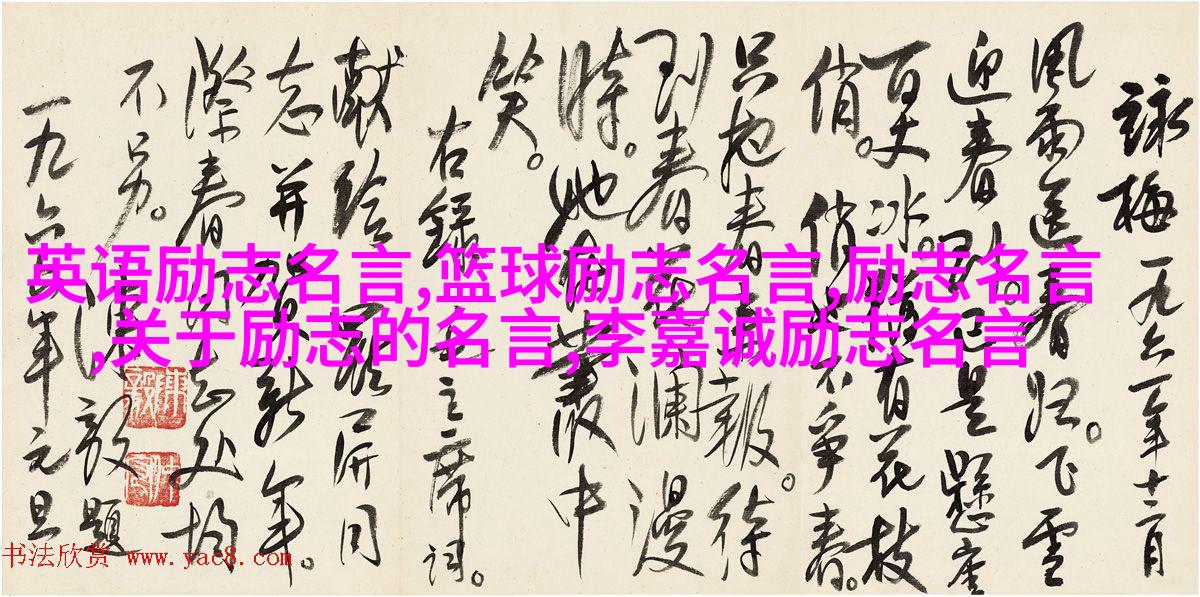 詠梅 一九六一年十二月
風雨送春归。飞雪
迎春到。已是懸崖
百丈冰。犹有花枝
俏。俏也不争春。
只把春来報。待
到春花瀾漫
時。她在叢中
笑。
右録毛主席词。
献给 同
志并贺新年。
際春 处均
不另。陳毅題
一九六二年元旦
英语励志名言,篮球励志名言,励志名言
,关于励志的名言,李嘉诚励志名言
书法欣赏 www.yac8.com